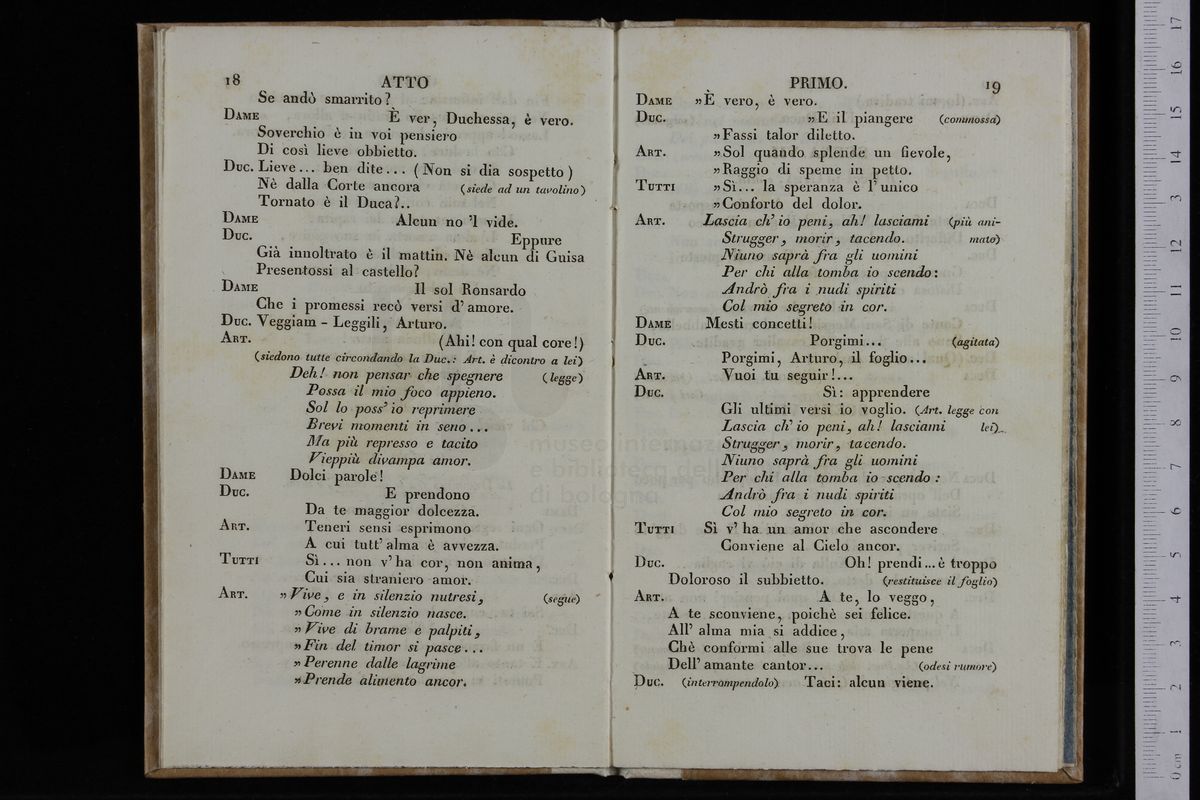 18 ATTO
Se andò smarrito?
DAME È ver, Duchessa, è vero.
Soverchio è in voi pensiero
Di così lieve obbietto.
DUC. Lieve... ben dite... (Non si dia sospetto)
Nè dalla Corte ancora (siede ad un tavolino)
Tornato è il Duca?..
DAME Alcun no 'l vide.
DUC. Eppure
Già innoltrato è il mattin. Nè alcun di Guisa
Presentossi al castello?
DAME Il sol Ronsardo
Che i promessi recò versi d'amore.
DUC. Veggiam - Leggili, Arturo.
ART. (Ahi! con qual core!)
(siedono tutte circondando la Duc.: Art. è dicontro a lei)
Deh! non pensar che spegnere (legge)
Possa il mio foco appieno.
Sol lo poss' io reprimere
Brevi momenti in seno...
Ma più represso e tacito
Vieppiù divampa amor.
DAME Dolci parole!
DUC. E prendono
Da te maggior dolcezza.
ART. Teneri sensi esprimono
A cui tutt' alma è avvezza.
TUTTI Sì... non v'ha cor, non anima,
Cui sia straniero amor.
ART. »Vive, e in silenzio nutresi, (segue)
»Come in silenzio nasce.
»Vive di brame e palpiti,
»Fin del timor si pasce...
»Perenne dalle lagrime
»Prende alimento ancor.
PRIMO. 19
DAME »È vero, è vero.
DUC. »E il piangere (commossa)
»Fassi talor diletto.
ART. »Sol quando splende un fievole,
»Raggio di speme in petto.
TUTTI »Sì... la speranza è l'unico
»Conforto del dolor.
ART. Lascia ch' io peni, ah! lasciami (più ani-
Strugger, morir, tacendo. mato)
Niuno saprà fra gli uomini
Per chi alla tomba io scendo:
Andrò fra i nudi spiriti
Col mio segreto in cor.
DAME Mesti concetti!
DUC. Porgimi... (agitata)
Porgimi, Arturo, il foglio...
ART. Vuoi tu seguir!...
DUC. Sì: apprendere
Gli ultimi versi io voglio. (Art. legge con
Lascia ch' io peni, ah! lasciami lei)
Strugger, morir, tacendo.
Niuno saprà fra gli uomini
Per chi alla tomba io scendo:
Andrò fra i nudi spiriti
Col mio segreto in cor.
TUTTI Sì v' ha un amor che ascondere
Conviene al Cielo ancor.
DUC. Oh! prendi... è troppo
Doloroso il subbietto. (restituisce il foglio)
ART. A te, lo veggo,
A te sconviene, poichè sei felice.
All' alma mia si addice,
Chè conformi alle sue trova le pene
Dell' amante cantor... (odesi rumore)
DUC. (interrompendolo) Taci: alcun viene.
museo internaz
e biblioteca del
di bologna
0 cm 1 2 3 4 5 6 7 8 9 10 11 12 13 14 15 16 17